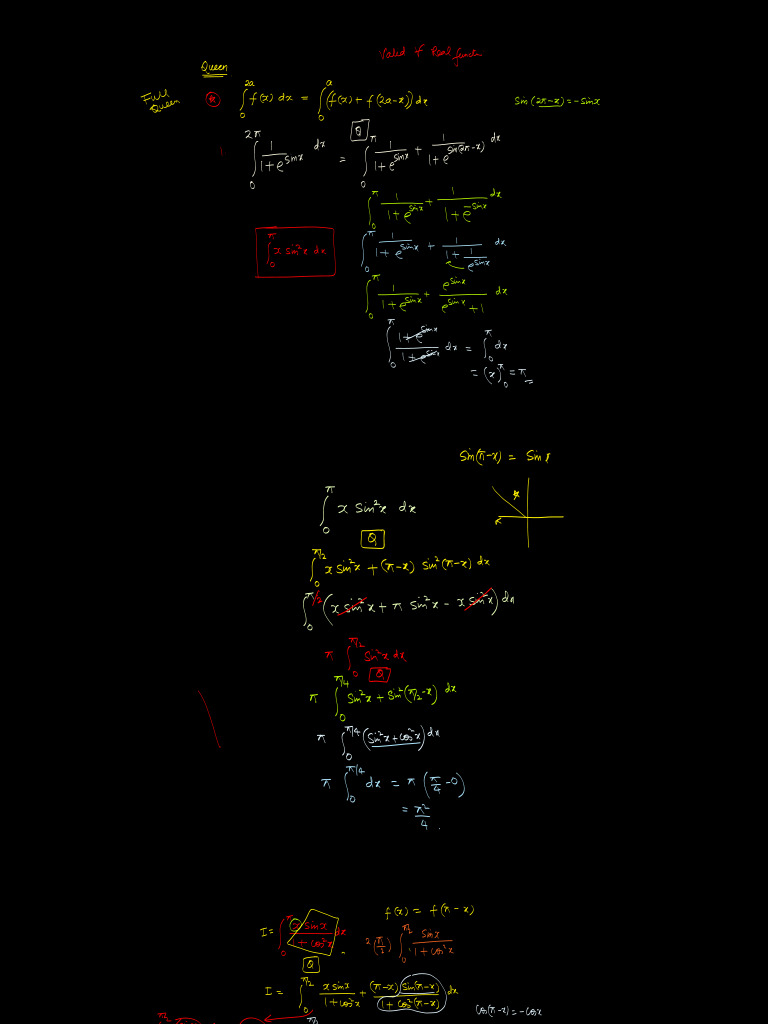 Valid f Real function
Queen
Full Queen
∫₀^{2a} f(x) dx = ∫₀^{a} (f(x) + f(2a-x)) dx
Sin(2π-x) = -Sinx
∫₀^{2π} 1/(1+e^{sinx}) dx = ∫₀^{π} 1/(1+e^{sinx}) + 1/(1+e^{Sin(2π-x)}) dx
Q
∫₀^{π} 1/(1+e^{sinx}) + 1/(1+e^{-Sinx}) dx
∫₀^{π} x sin²x dx
∫₀^{π} 1/(1+e^{sinx}) + 1/(1+1/e^{Sinx}) dx
∫₀^{π} 1/(1+e^{sinx}) + e^{Sinx}/(e^{Sinx}+1) dx
∫₀^{π} (1+e^{Sinx})/(1+e^{Sinx}) dx = ∫₀^{π} dx
= (x)₀^{π} = π
Sin(π-x) = Sin x
∫₀^{π} x Sin²x dx
Q
∫₀^{π/2} x Sin²x + (π-x) Sin²(π-x) dx
∫₀^{π/2} (x sin²x + π Sin²x - x sin²x) dx
π ∫₀^{π/2} Sin²x dx
Q
π ∫₀^{π/4} Sin²x + Sin²(π/2-x) dx
π ∫₀^{π/4} (Sin²x + Cos²x) dx
π ∫₀^{π/4} dx = π (π/4 - 0)
= π²/4 .
f(x) = f(π-x)
I = ∫₀^{π} x sinx/(1+cos²x) dx
2(π/2) ∫₀^{π/2} Sinx/(1+cos²x)
Q
I = ∫₀^{π/2} x sinx/(1+cos²x) + (π-x) Sin(π-x)/(1+cos²(π-x)) dx
Cos(π-x) = -cosx